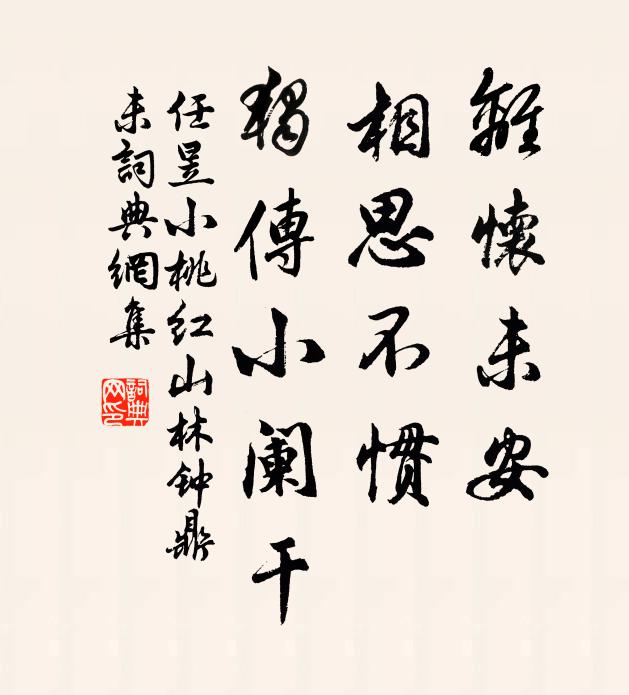 離懷未安
相思不慣
獨傳小阑干
任昱小桃红山林钟鼎
未詞典網集
詞典
网印